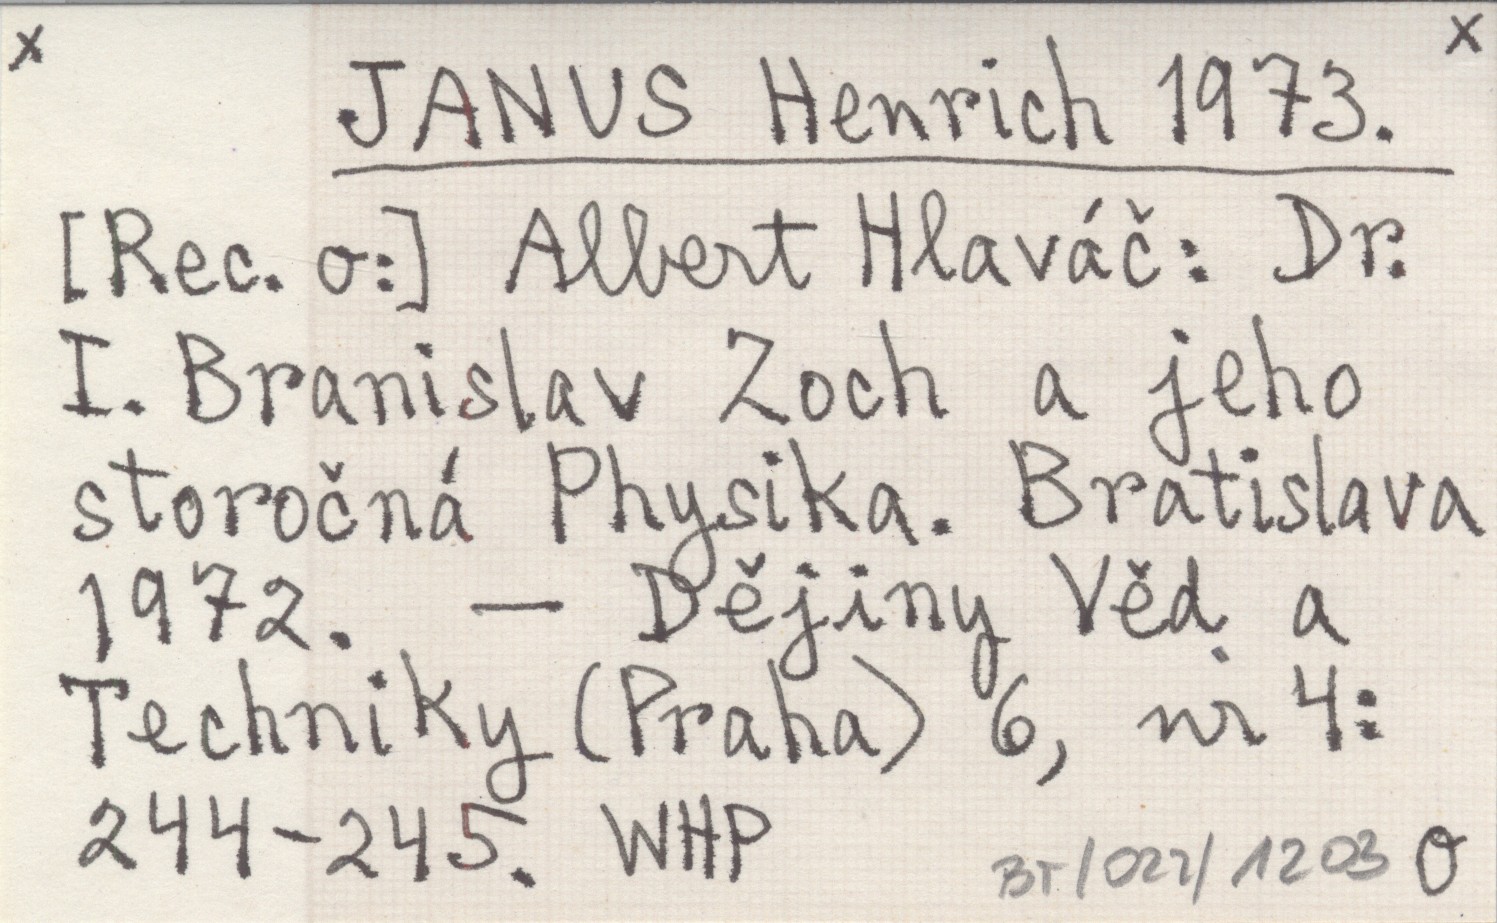 x x
JANUS Henrich 1973.
[Rec. o:] Albert Hlaváč: Dr.
I. Branislav Zoch a jeho
storočná Physika. Bratislava
1972. — Dějiny Věd a
Techniky (Praha) 6, nr 4:
244-245. WHP
BT/022/1203 O